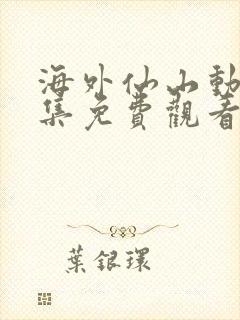 海外仙山動
集免費觀看
葉銀環